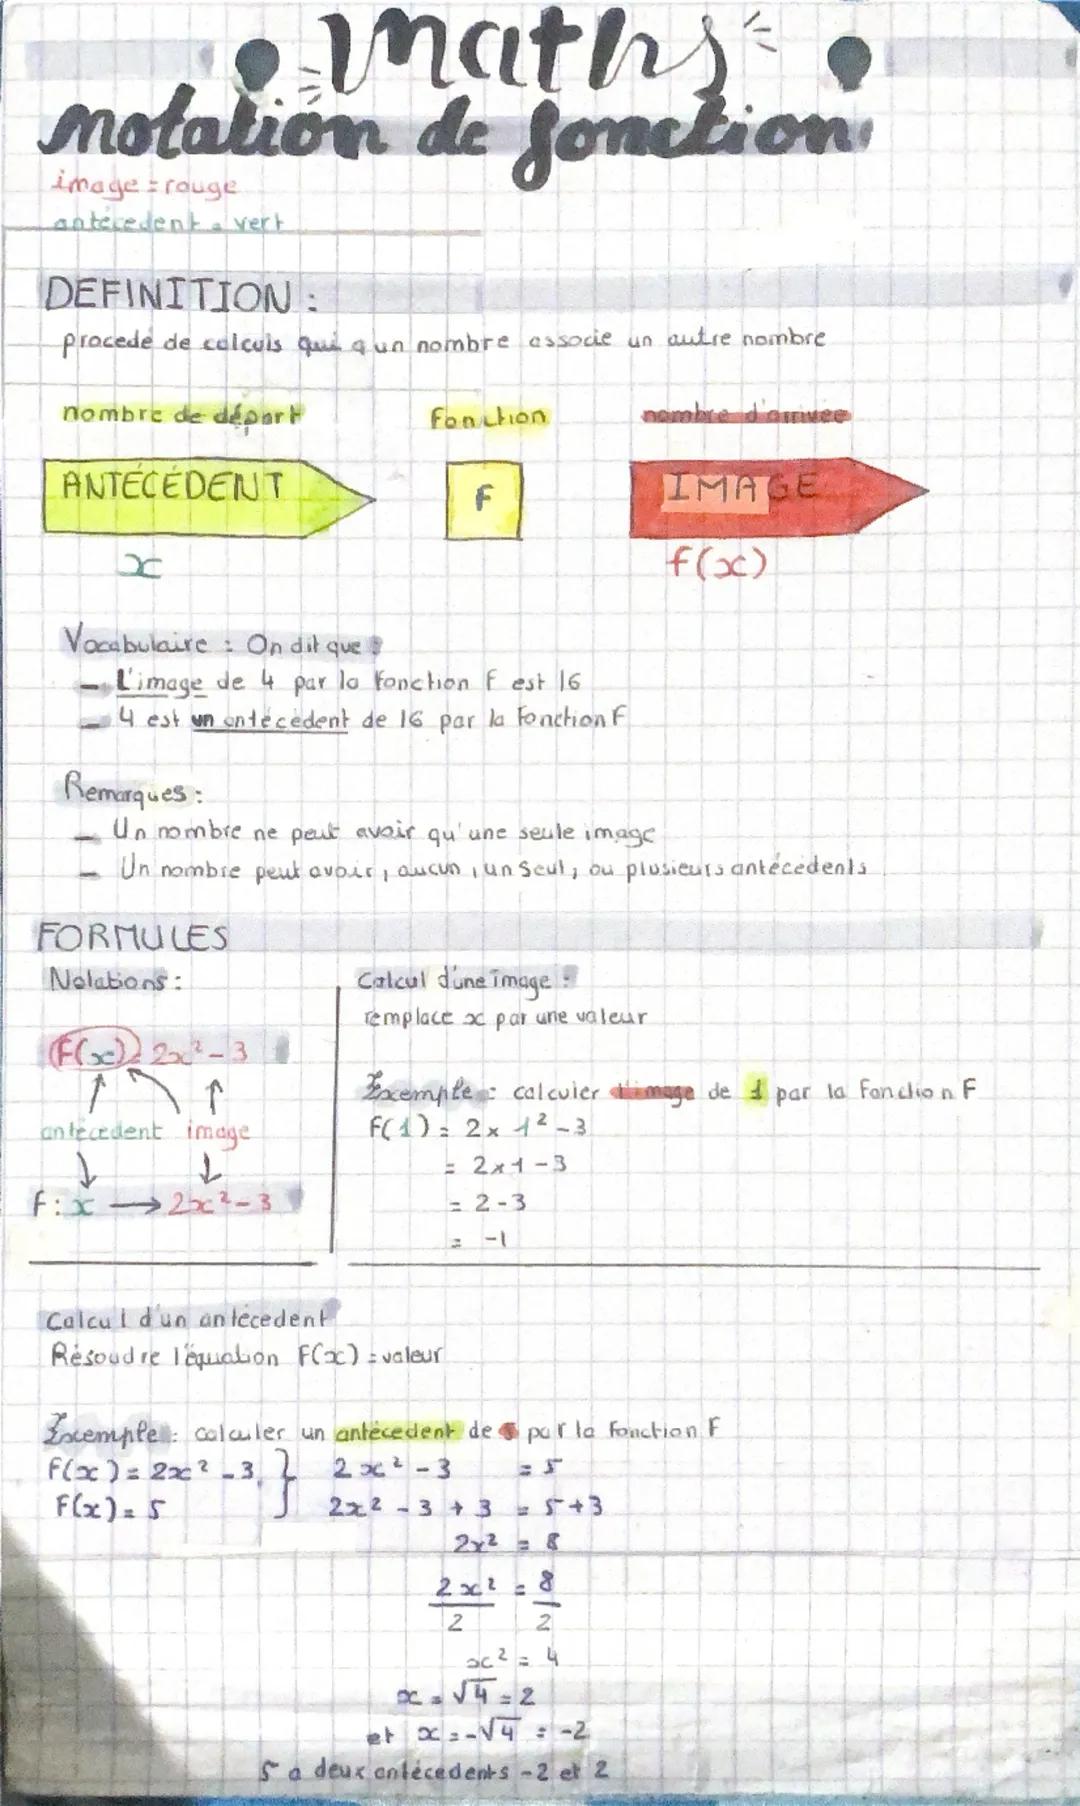 maths
notation de fonction
image = rouge
antécedent = vert
DEFINITION :
procedé de calculs qui a un nombre associe un autre nombre
nombre de départ fonction nombre d'arrivée
ANTÉCÉDENT F IMAGE
x f(x)
Vocabulaire : On dit que :
- L'image de 4 par la fonction f est 16
- 4 est un antécédent de 16 par la fonction F
Remarques :
- Un nombre ne peut avoir qu'une seule image
- Un nombre peut avoir, aucun, un seul, ou plusieurs antécédents
FORMULES
Notations :
F(x) = 2x² - 3
antécedent image
f : x → 2x² - 3
Calcul d'une image :
remplace x par une valeur
Exemple : calculer l'image de 1 par la fonction F
F(1) = 2 x 1² - 3
= 2x1 - 3
= 2 - 3
= -1
Calcul d'un antécedent
Résoudre l'équation F(x) = valeur
Exemple : calculer un antécedent de 5 par la fonction F
F(x) = 2x² - 3 } 2x² - 3 = 5
F(x) = 5 2x² - 3 + 3 = 5 + 3
2x² = 8
2x²/2 = 8/2
x² = 4
x = √4 = 2
et x = -√4 = -2
5 a deux antécedents -2 et 2